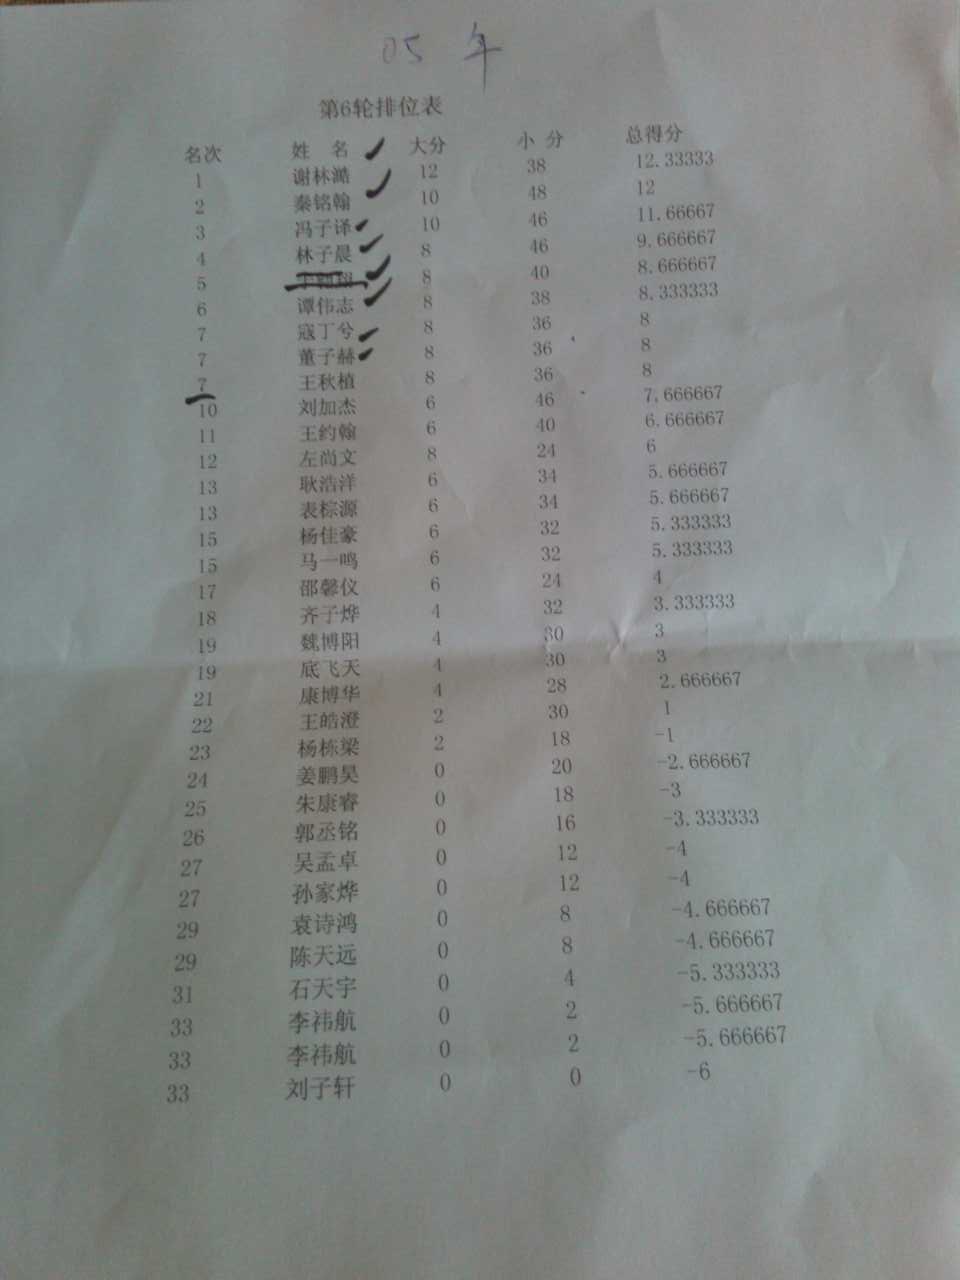 05 年
第6轮排位表
名次 姓 名 大分 小 分 总得分
1 谢林澔 12 38 12.33333
2 秦铭翰 10 48 12
3 冯子译 10 46 11.66667
4 林子晨 8 46 9.666667
5 8 40 8.666667
6 谭伟志 8 38 8.333333
7 寇丁兮 8 36 8
7 董子赫 8 36 8
7 王秋植 8 36 8
10 刘加杰 6 46 7.666667
11 王约翰 6 40 6.666667
12 左尚文 8 24 6
13 耿浩洋 6 34 5.666667
13 表棕源 6 34 5.666667
15 杨佳豪 6 32 5.333333
15 马一鸣 6 32 5.333333
17 邵馨仪 6 24 4
18 齐子烨 4 32 3.333333
19 魏博阳 4 30 3
19 底飞天 4 30 3
21 康博华 4 28 2.666667
22 王皓澄 2 30 1
23 杨栋梁 2 18 -1
24 姜鹏昊 0 20 -2.666667
25 朱康睿 0 18 -3
26 郭丞铭 0 16 -3.333333
27 吴孟卓 0 12 -4
27 孙家烨 0 12 -4
29 袁诗鸿 0 8 -4.666667
29 陈天远 0 8 -4.666667
31 石天宇 0 4 -5.333333
33 李祎航 0 2 -5.666667
33 李祎航 0 2 -5.666667
33 刘子轩 0 0 -6